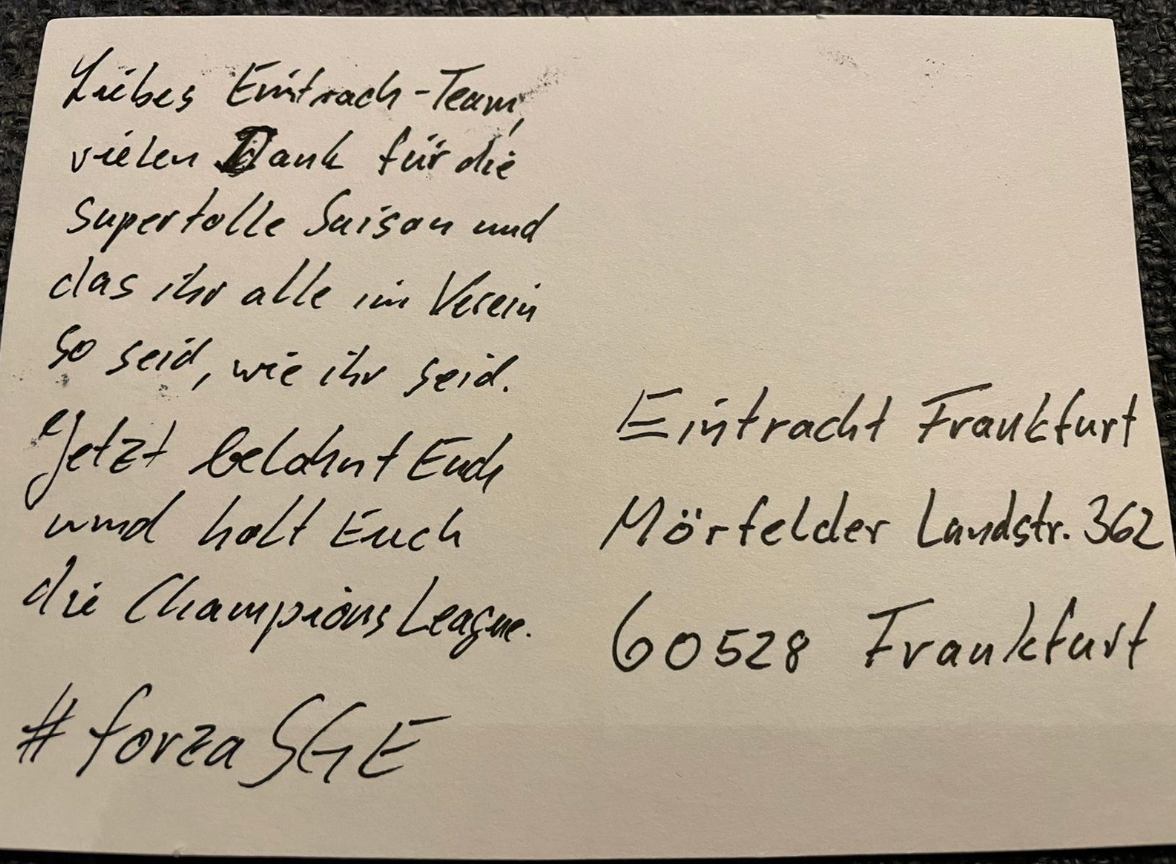 Liebes Eintrach-Team,
vielen Dank für die
supertolle Saison und
das ihr alle im Verein
so seid, wie ihr seid.
Jetzt belohnt Euch
und holt Euch
die Champions League.
#forzaSGE
Eintracht Frankfurt
Mörfelder Landstr. 362
60528 Frankfurt